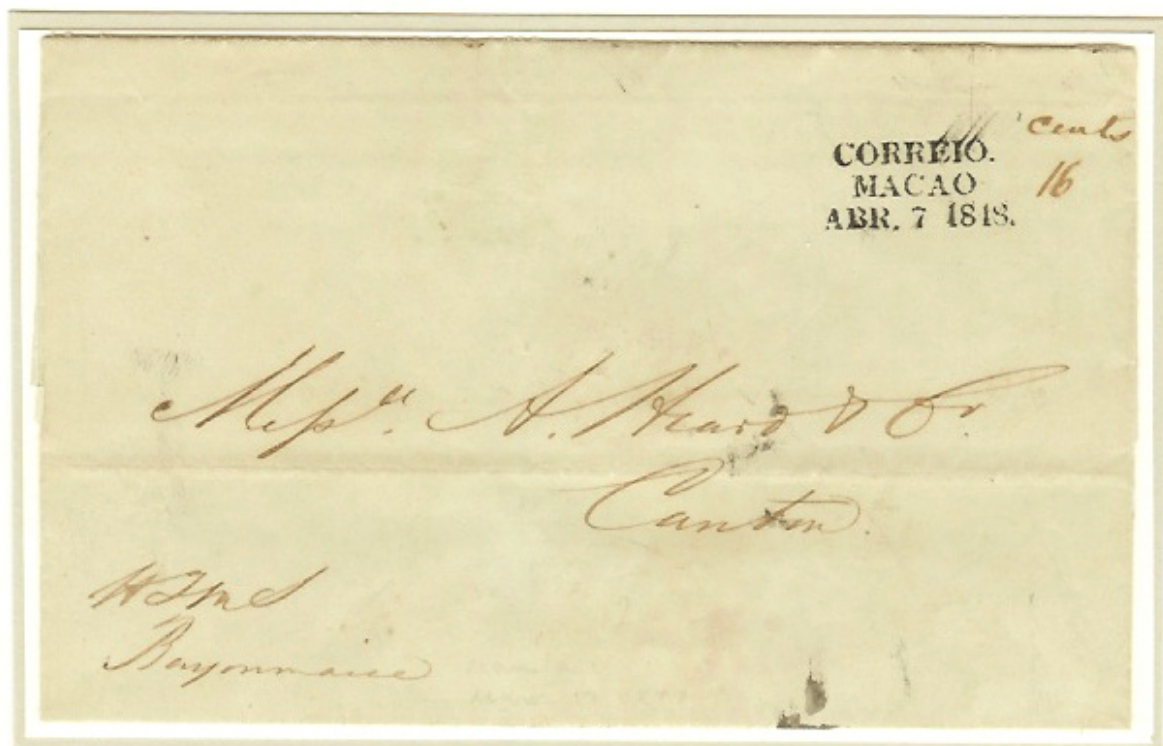 cents
CORREIO.
16
MACAO
ABR. 7 1848.
Messrs. A. Heard & Co
Canton.
HFMS
Bayonnaise